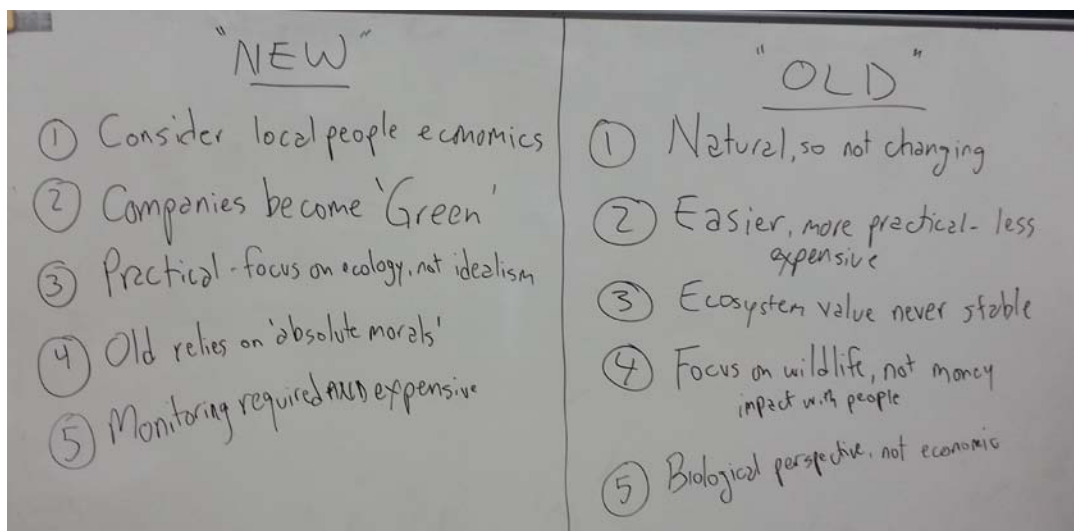 "NEW"
① Consider local people economics
② Companies become 'Green'
③ Practical - focus on ecology, not idealism
④ Old relies on 'absolute morals'
⑤ Monitoring required AND expensive
"OLD"
① Natural, so not changing
② Easier, more practical - less
expensive
③ Ecosystem value never stable
④ Focus on wildlife, not money
impact with people
⑤ Biological perspective, not economic